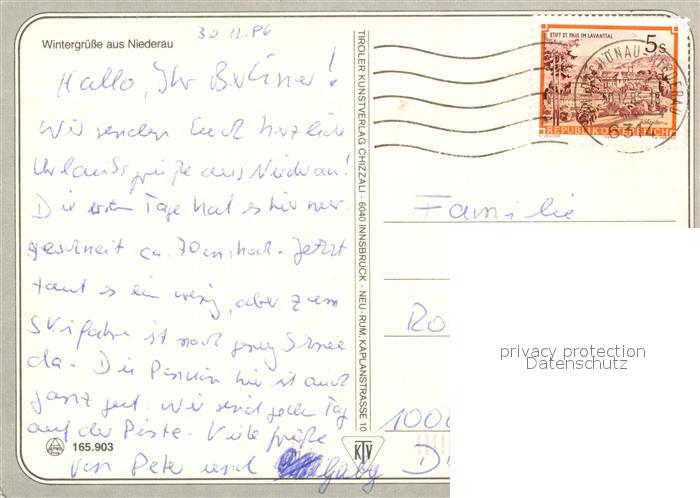 30.12.86
Wintergrüße aus Niederau
Hallo, Ihr Berliner!
Wir senden Euch herzliche
Urlaubsgrüße aus Niederau!
Die ersten Tage hat es hier nur
geschneit ca. 70 cm hoch. Jetzt
taut es ein wenig, aber zum
Skifahren ist noch genug Schnee
da. Die Pension hier ist auch
ganz gut. Wir sind jeden Tag
auf der Piste. Viele Grüße
von Peter und Gaby
165.903
TIROLER KUNSTVERLAG CHIZZALI - 6040 INNSBRUCK - NEU-RUM, KAPLANSTRASSE 10
KTV
STIFT ST. PAUL IM LAVANTTAL
5s
REPUBLIK ÖSTERREICH
Familie
Ro
1000
privacy protection
Datenschutz